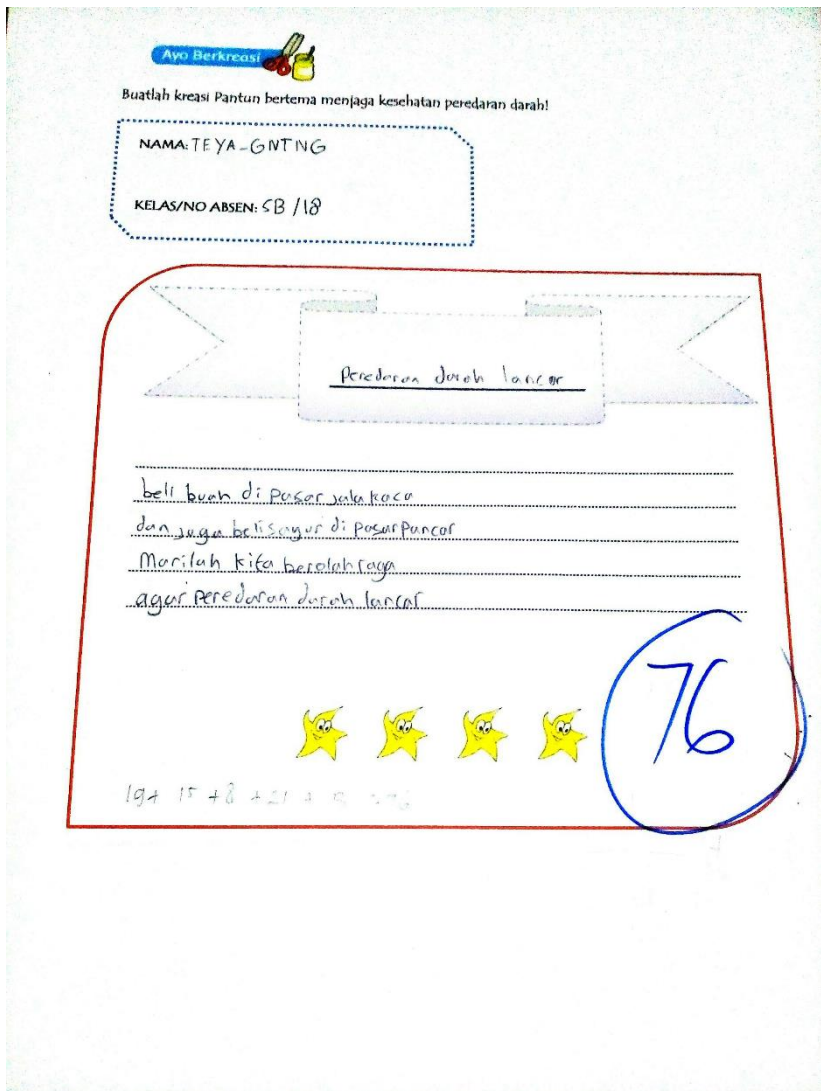 Ayo Berkreasi
Buatlah kreasi Pantun bertema menjaga kesehatan peredaran darah!
NAMA: TEYA-GNTNG
KELAS/NO ABSEN: 5B /18
Peredaran darah lancar
beli buah di pasar jala kaca
dan juga beli sayur di pasar pancor
Marilah kita berolahraga
agar peredaran darah lancar
76
19+ 15 +8 +21 +